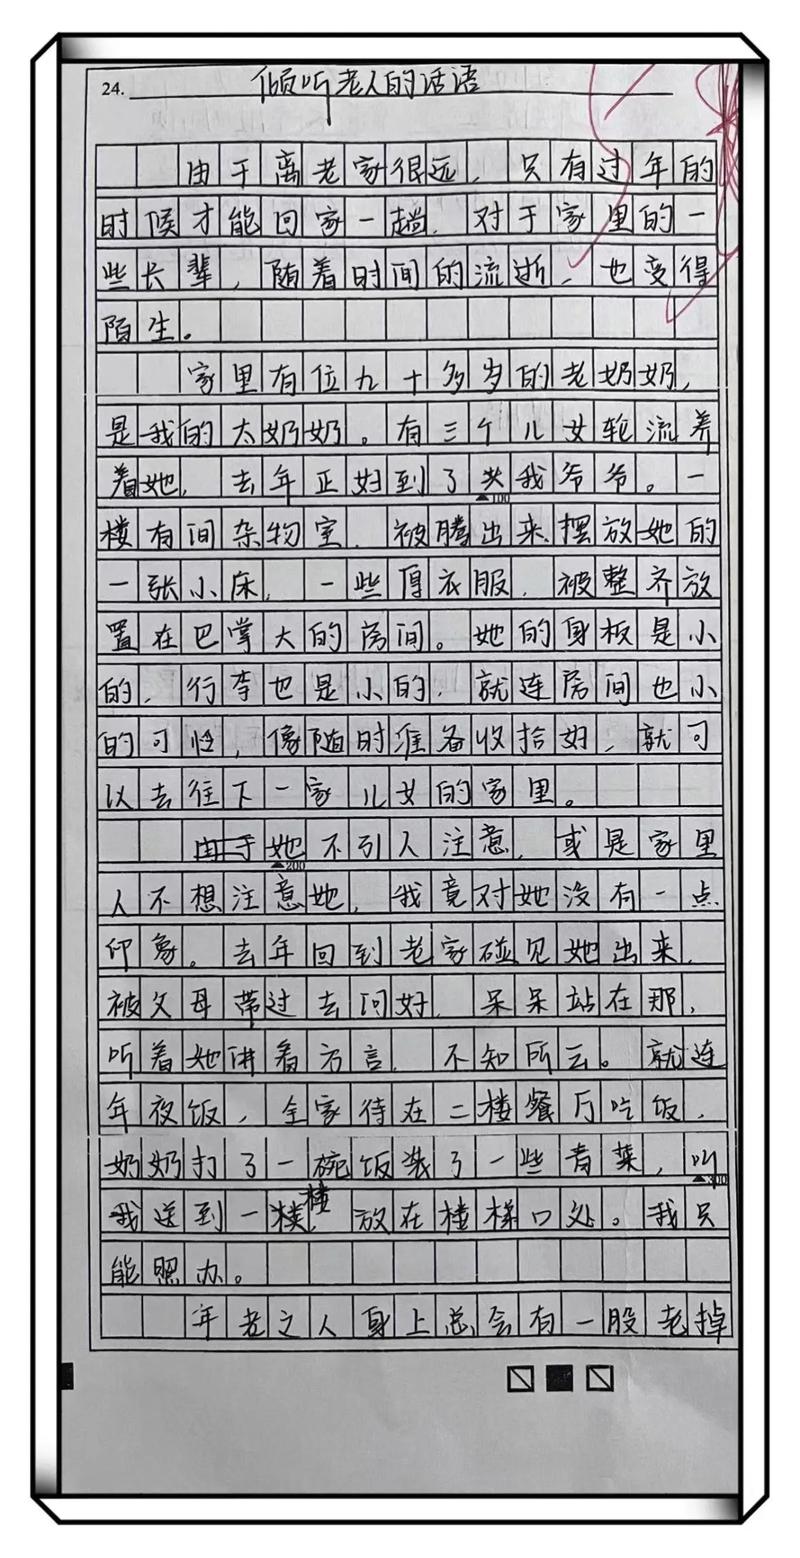 24. 倾听老人的话语
由于离老家很远，只有过年的
时候才能回家一趟，对于家里的一
些长辈，随着时间的流逝，也变得
陌生。
家里有位九十多岁的老奶奶，
是我的太奶奶。有三个儿女轮流养
着她，去年正好到了我爷爷。一
100
楼有间杂物室，被腾出来摆放她的
一张小床，一些厚衣服，被整齐放
置在巴掌大的房间。她的身板是小
的，行李也是小的，就连房间也小
的可怜，像随时准备收拾好，就可
以去往下一家儿女的家里。
由于她不引人注意，或是家里
200
人不想注意她，我竟对她没有一点
印象。去年回到老家碰见她出来，
被父母带过去问好，呆呆站在那，
听着她讲着方言，不知所云。就连
年夜饭，全家待在二楼餐厅吃饭，
奶奶打了一碗饭装了一些青菜，叫
300
我送到一楼，放在楼梯口处。我只
能照办。
年老之人身上总会有一股老掉